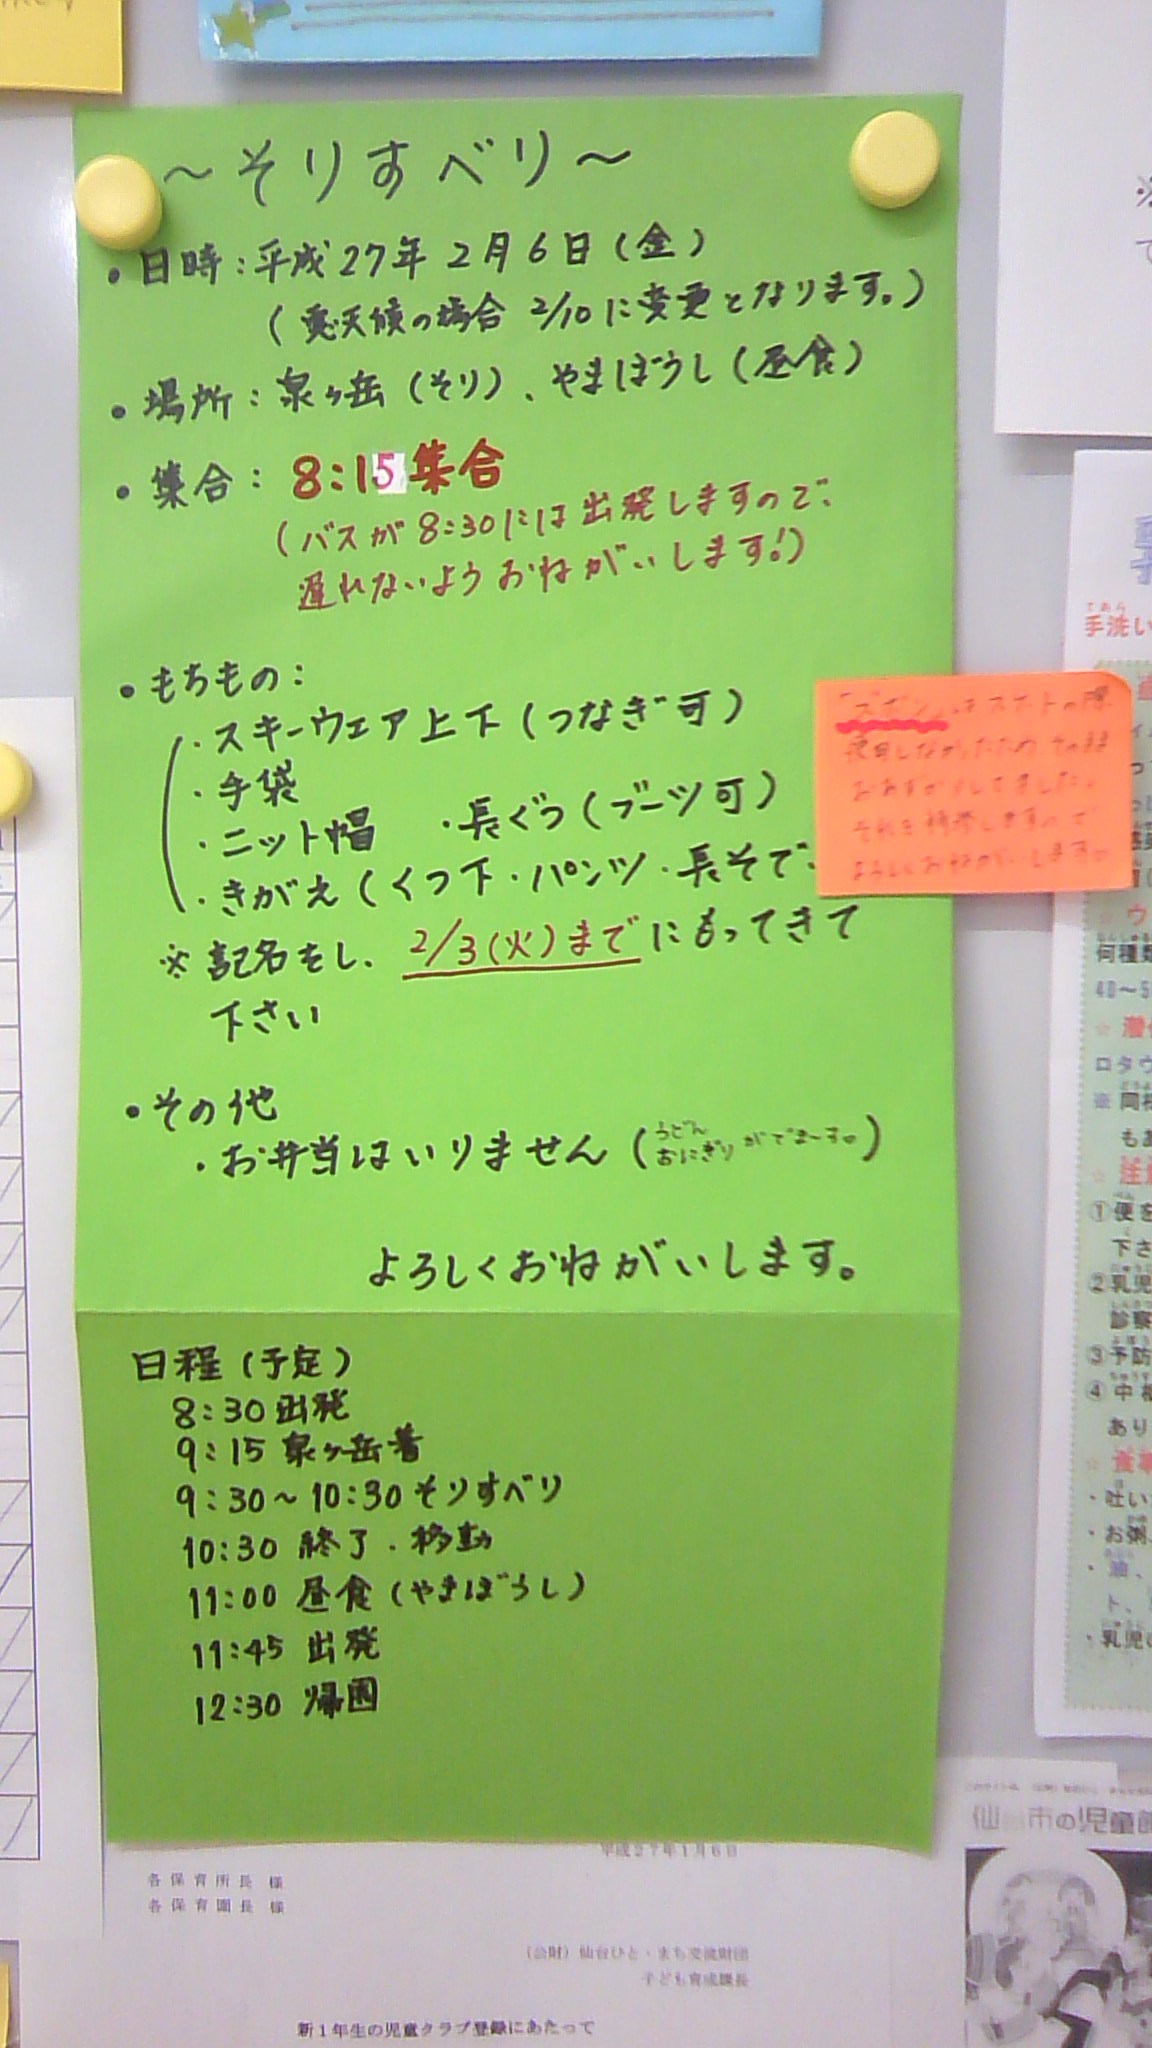 ～そりすべり～
・日時：平成27年 2月6日（金）
（悪天候の場合 2/10に変更となります。）
・場所：泉ヶ岳（そり）、やまぼうし（昼食）
・集合：8:15集合
（バスが8:30には出発しますので、
遅れないようおねがいします！）
・もちもの：
・スキーウェア上下（つなぎ可）
・手袋
・ニット帽 ・長ぐつ（ブーツ可）
・きがえ（くつ下・パンツ・長そで
※記名をし、2/3(火)までにもってきて
下さい
「ズボン」
使用しなかったため、そのまま
おあずかりしてました。
それを持参しますので
よろしくおねがいします。
・その他
・お弁当はいりません（うどん おにぎり がでまーす。）
よろしくおねがいします。
日程（予定）
8:30 出発
9:15 泉ヶ岳着
9:30～10:30 そりすべり
10:30 終了・移動
11:00 昼食（やまぼうし）
11:45 出発
12:30 帰園
平成27年1月6日
各保育所長 様
各保育園長 様
（公財）仙台ひと・まち交流財団
子ども育成課長
新1年生の児童クラブ登録にあたって
てあら
手洗い
何種類
40～5
ロタウ
もあ
①便を
下さ
②乳児
診察
③予防
④中
あり
・吐い
・お粥
・油、
ト、
・乳児
市の児童館